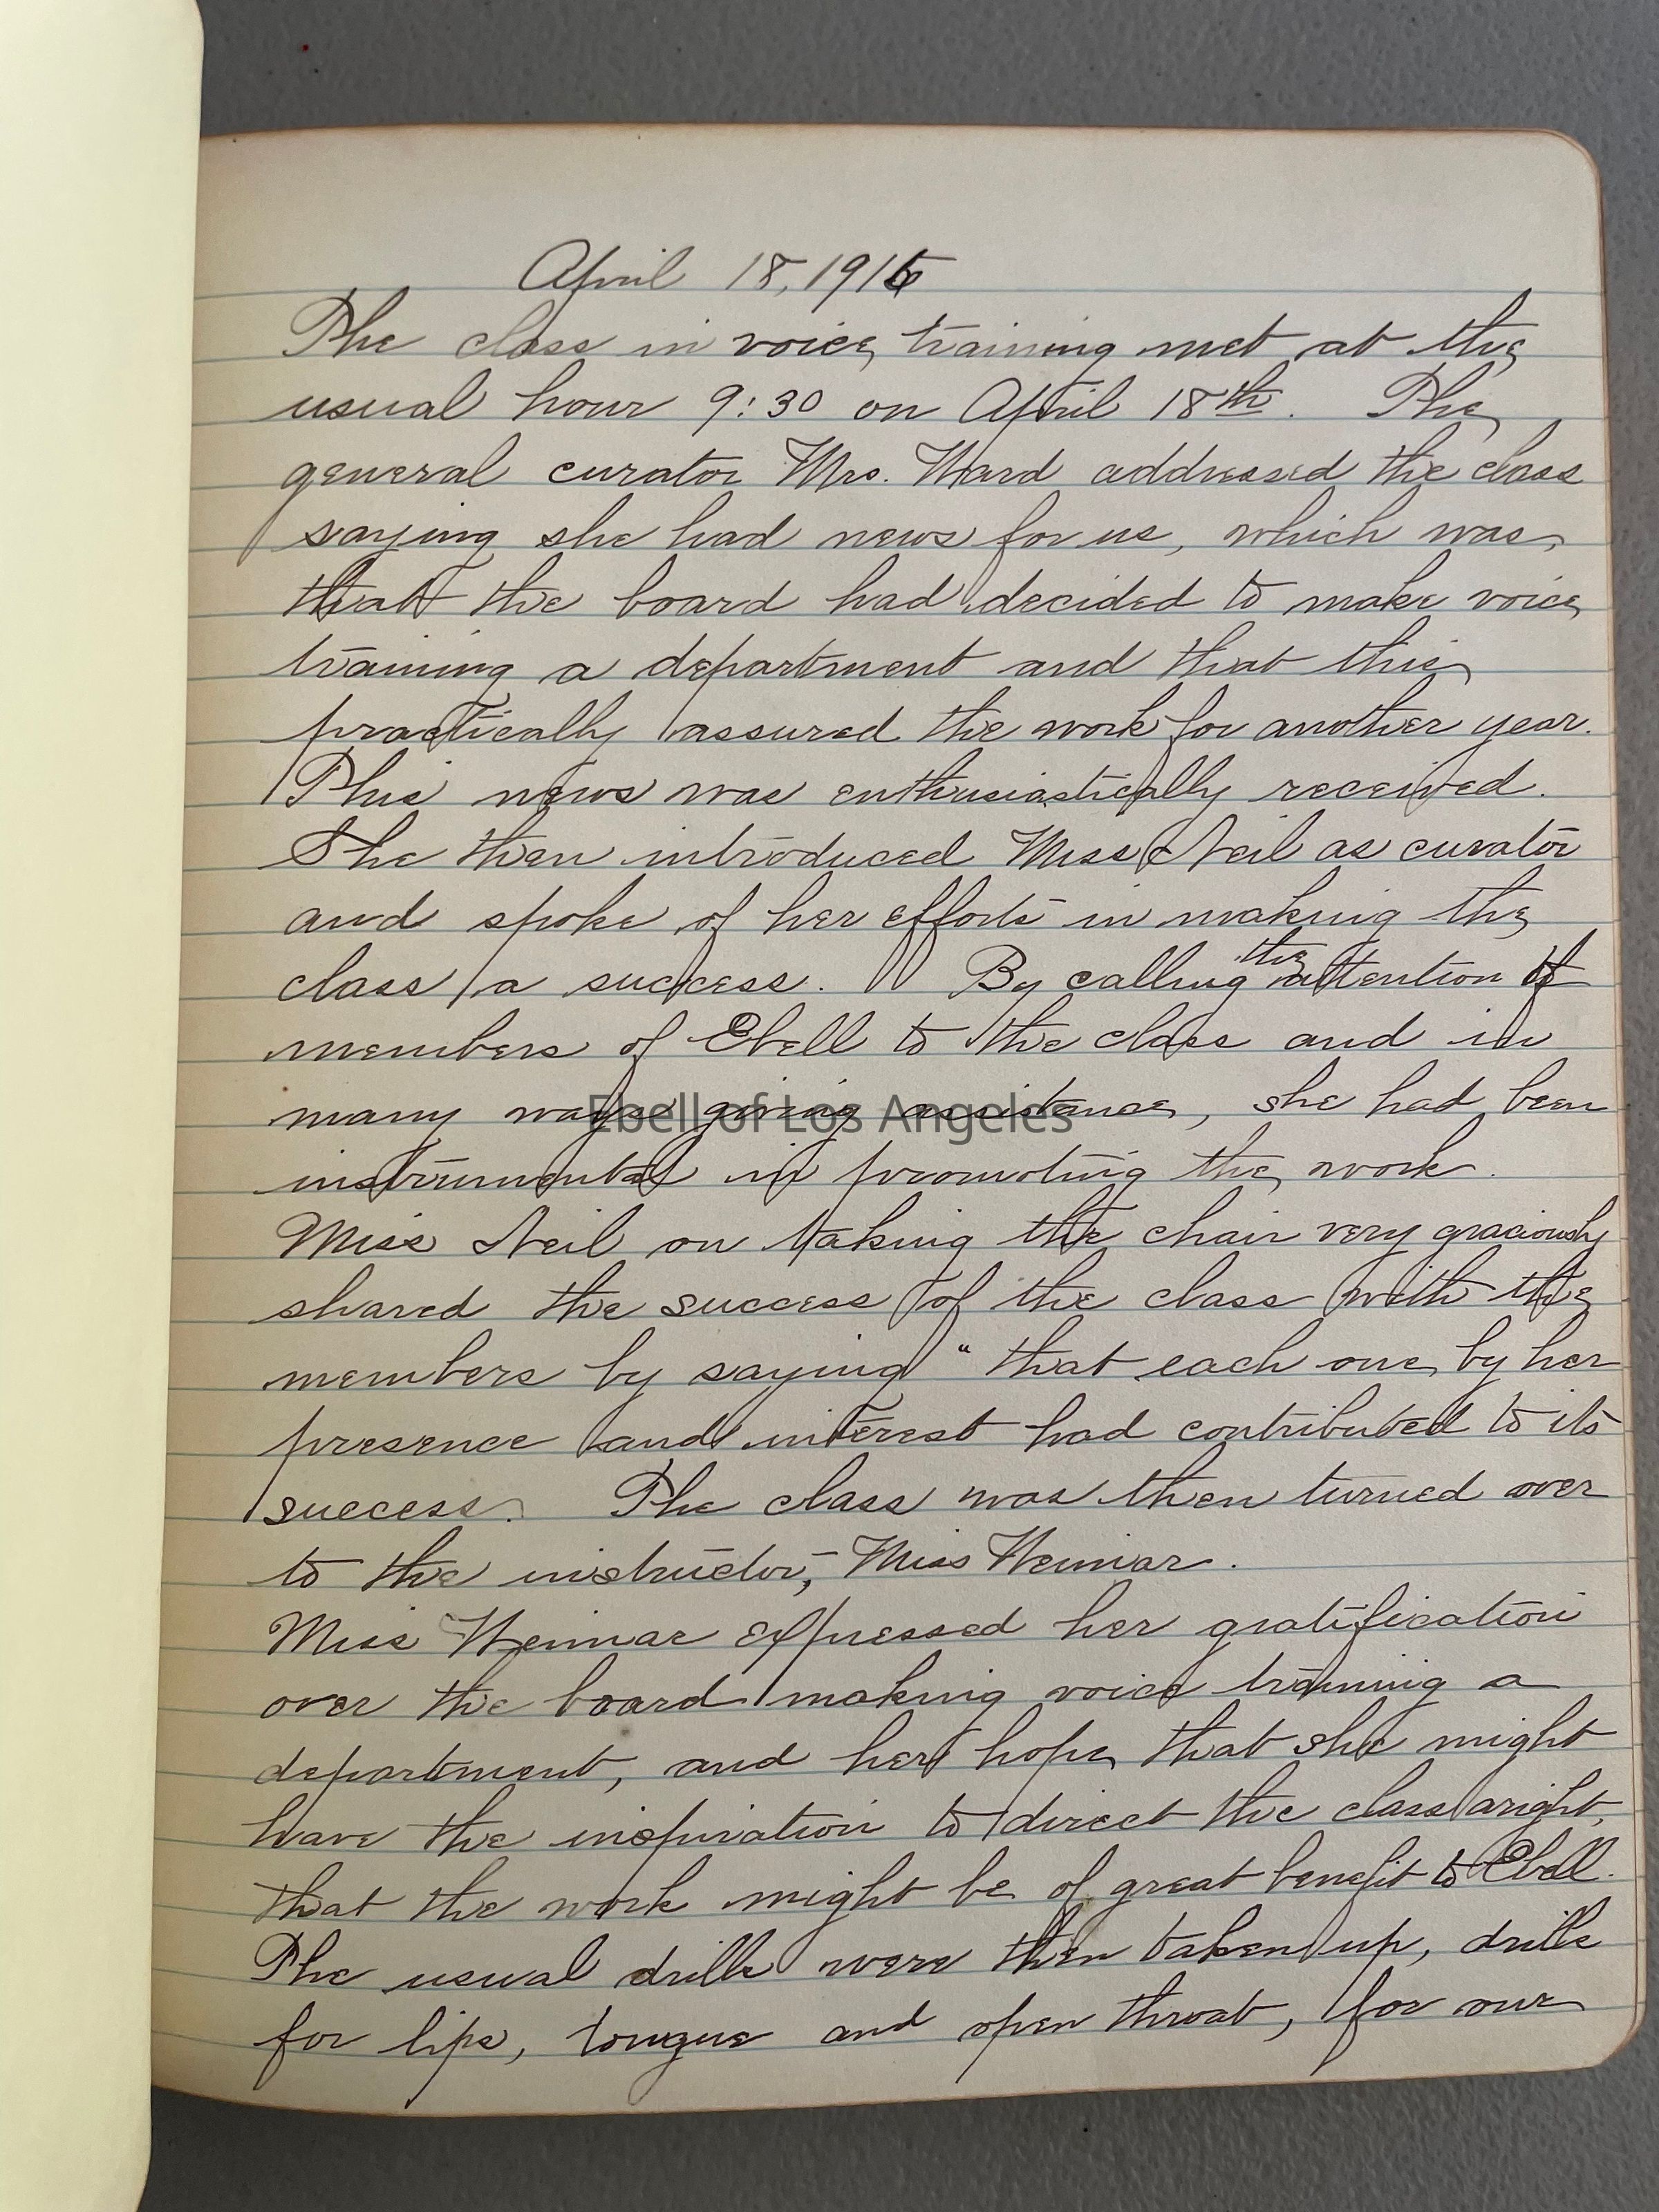 April 18, 1916
The class in voice training met at the
usual hour 9:30 on April 18th. The
general curator Mrs. Ward addressed the class
saying she had news for us, which was,
that the board had decided to make voice
training a department and that this
practically assured the work for another year.
This news was enthusiastically received.
She then introduced Miss Neil as curator
and spoke of her efforts in making the
class a success. By calling the attention of
members of Ebell to the class and in
many ways giving assistance, she had been
Ebell of Los Angeles
instrumental in promoting the work.
Miss Neil on taking the chair very graciously
shared the success of the class with the
members by saying "that each one by her
presence and interest had contributed to its
success. The class was then turned over
to the instructor, Miss Weimar.
Miss Weimar expressed her gratification
over the board making voice training a
department, and her hope that she might
have the inspiration to direct the class aright,
that the work might be of great benefit to Ebell.
The usual drills were then taken up, drills
for lips, tongue and open throat, for our